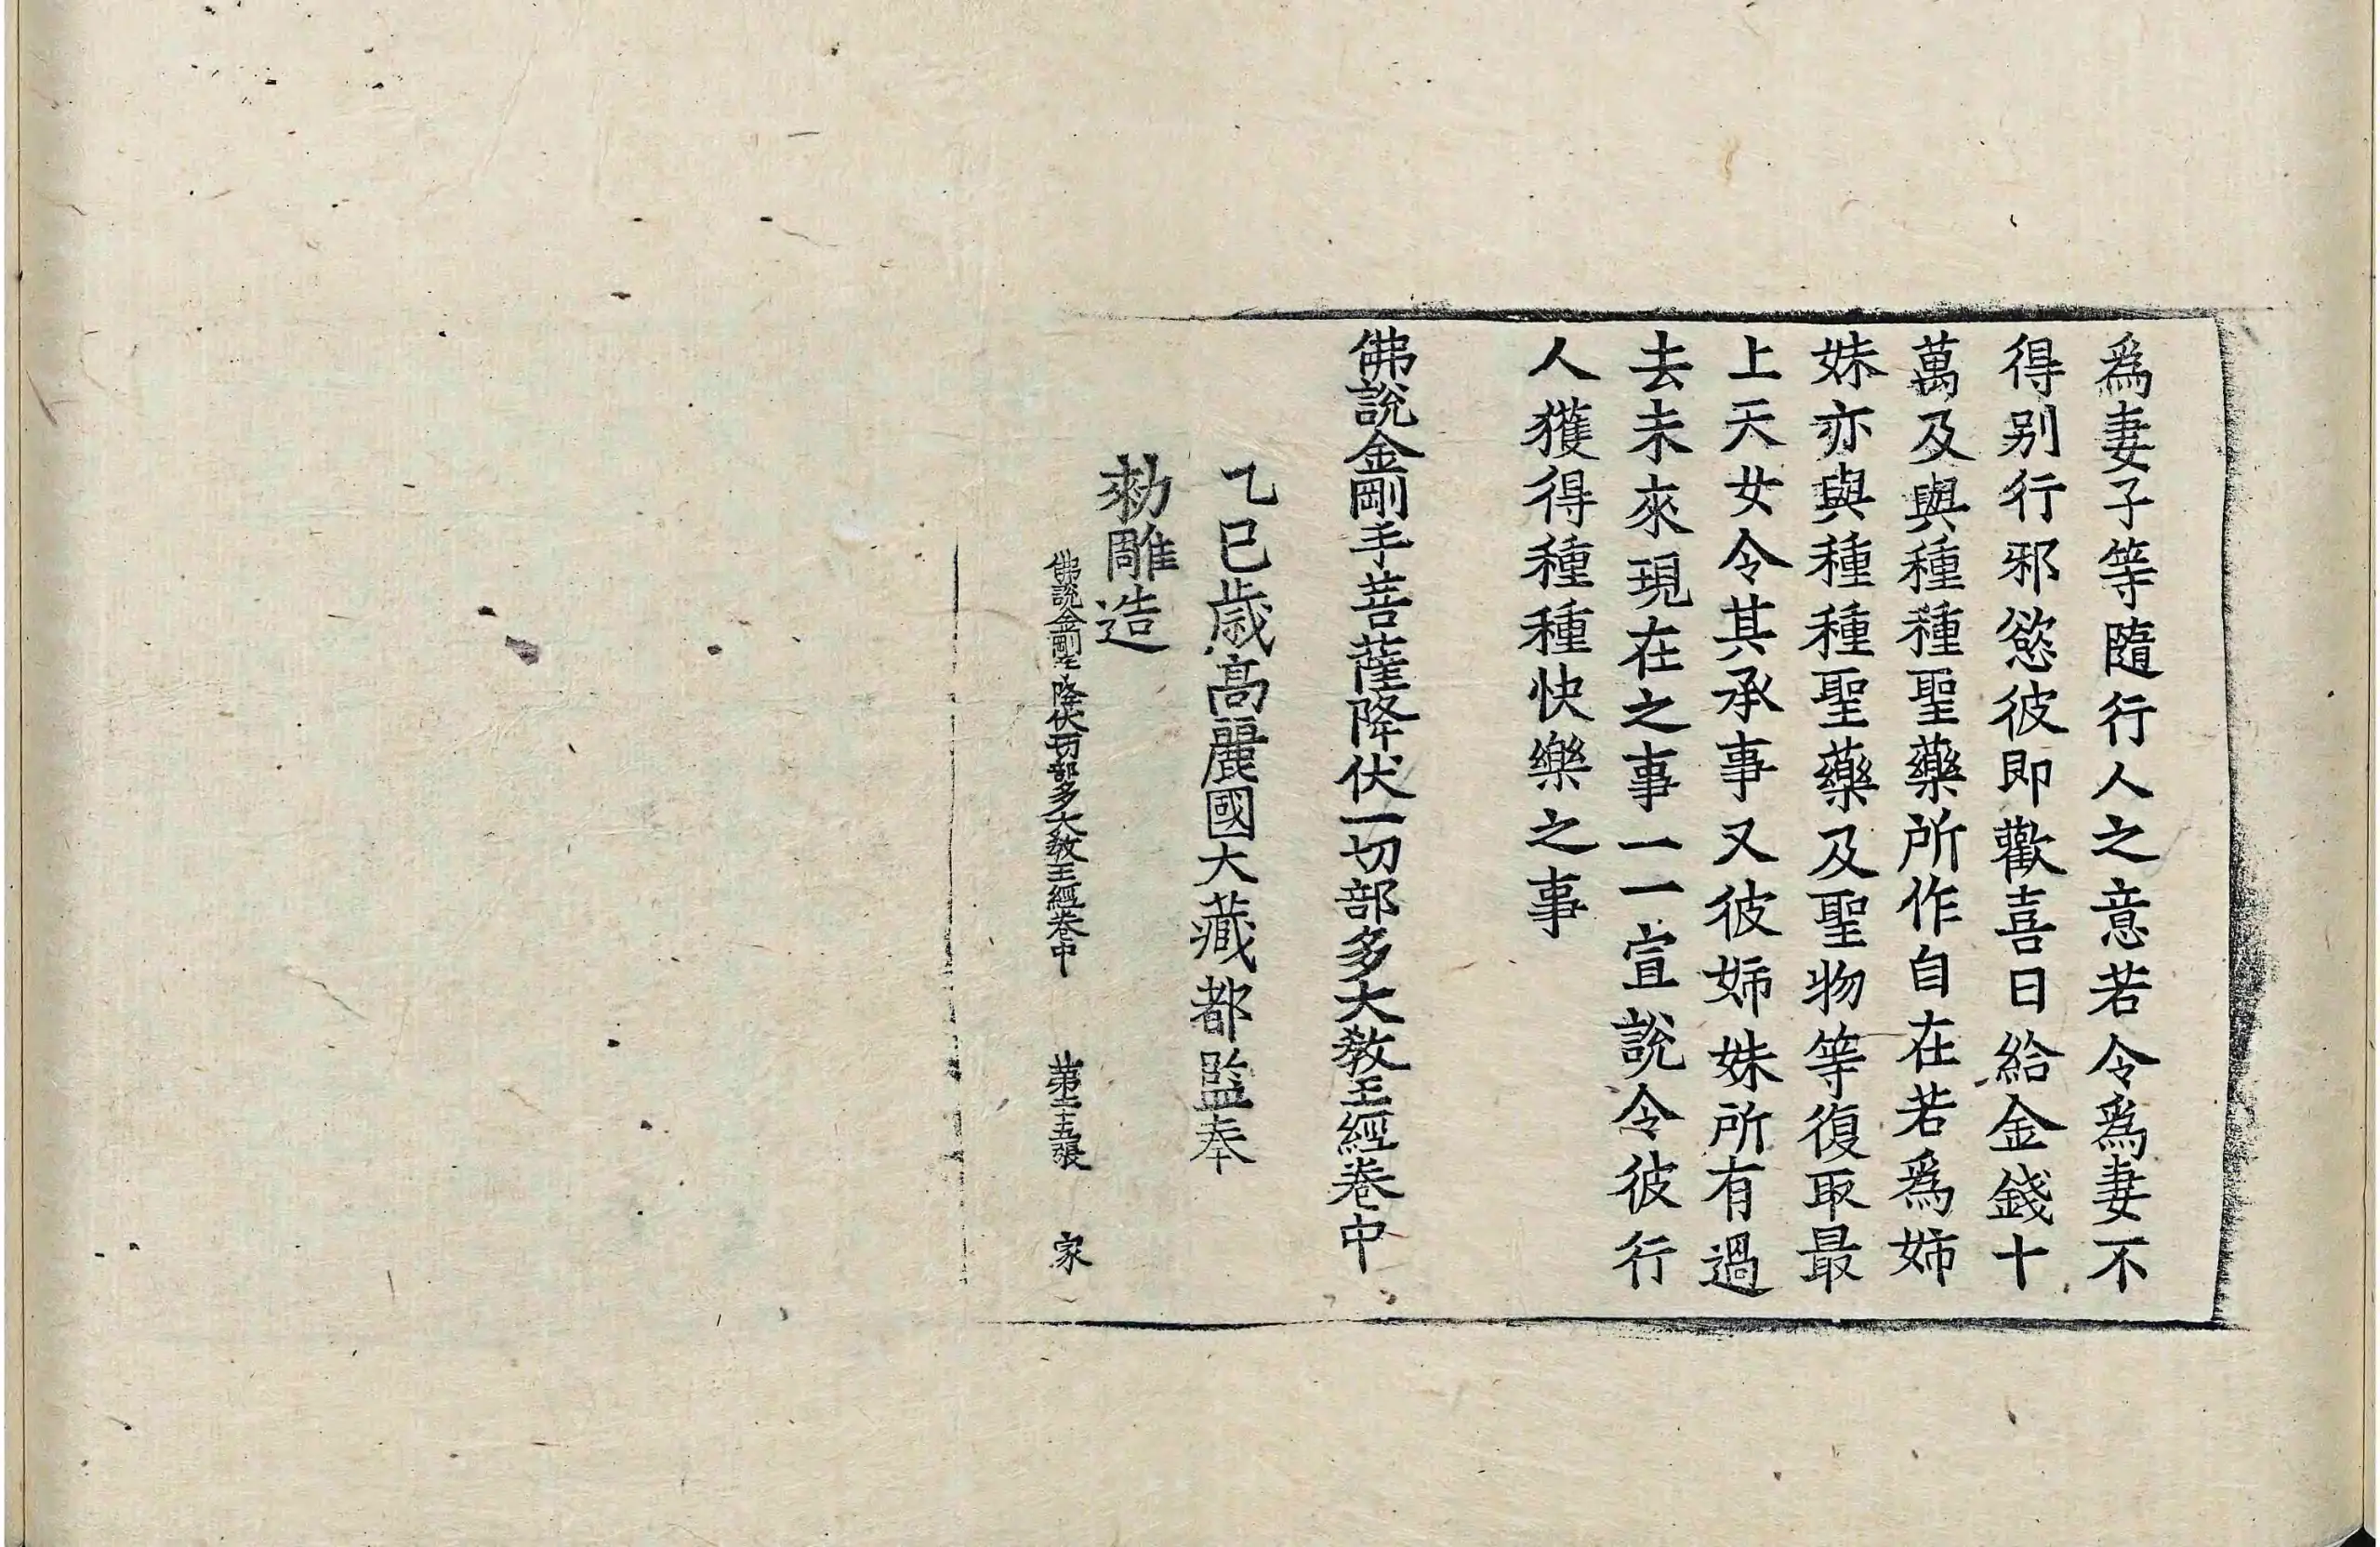 爲妻子等隨行人之意若令爲妻不
得别行邪慾彼即歡喜日給金錢十
萬及與種種聖藥所作自在若爲姉
妹亦與種種聖藥及聖物等復取最
上天女令其承事又彼姉妹所有過
去未來現在之事一一宣說令彼行
人獲得種種快樂之事
佛說金剛手菩薩降伏一切部多大敎王經卷中
乙巳歲高麗國大藏都監奉
勑雕造
佛說金剛手降伏一切部多大敎王經卷中 第二十五張 家